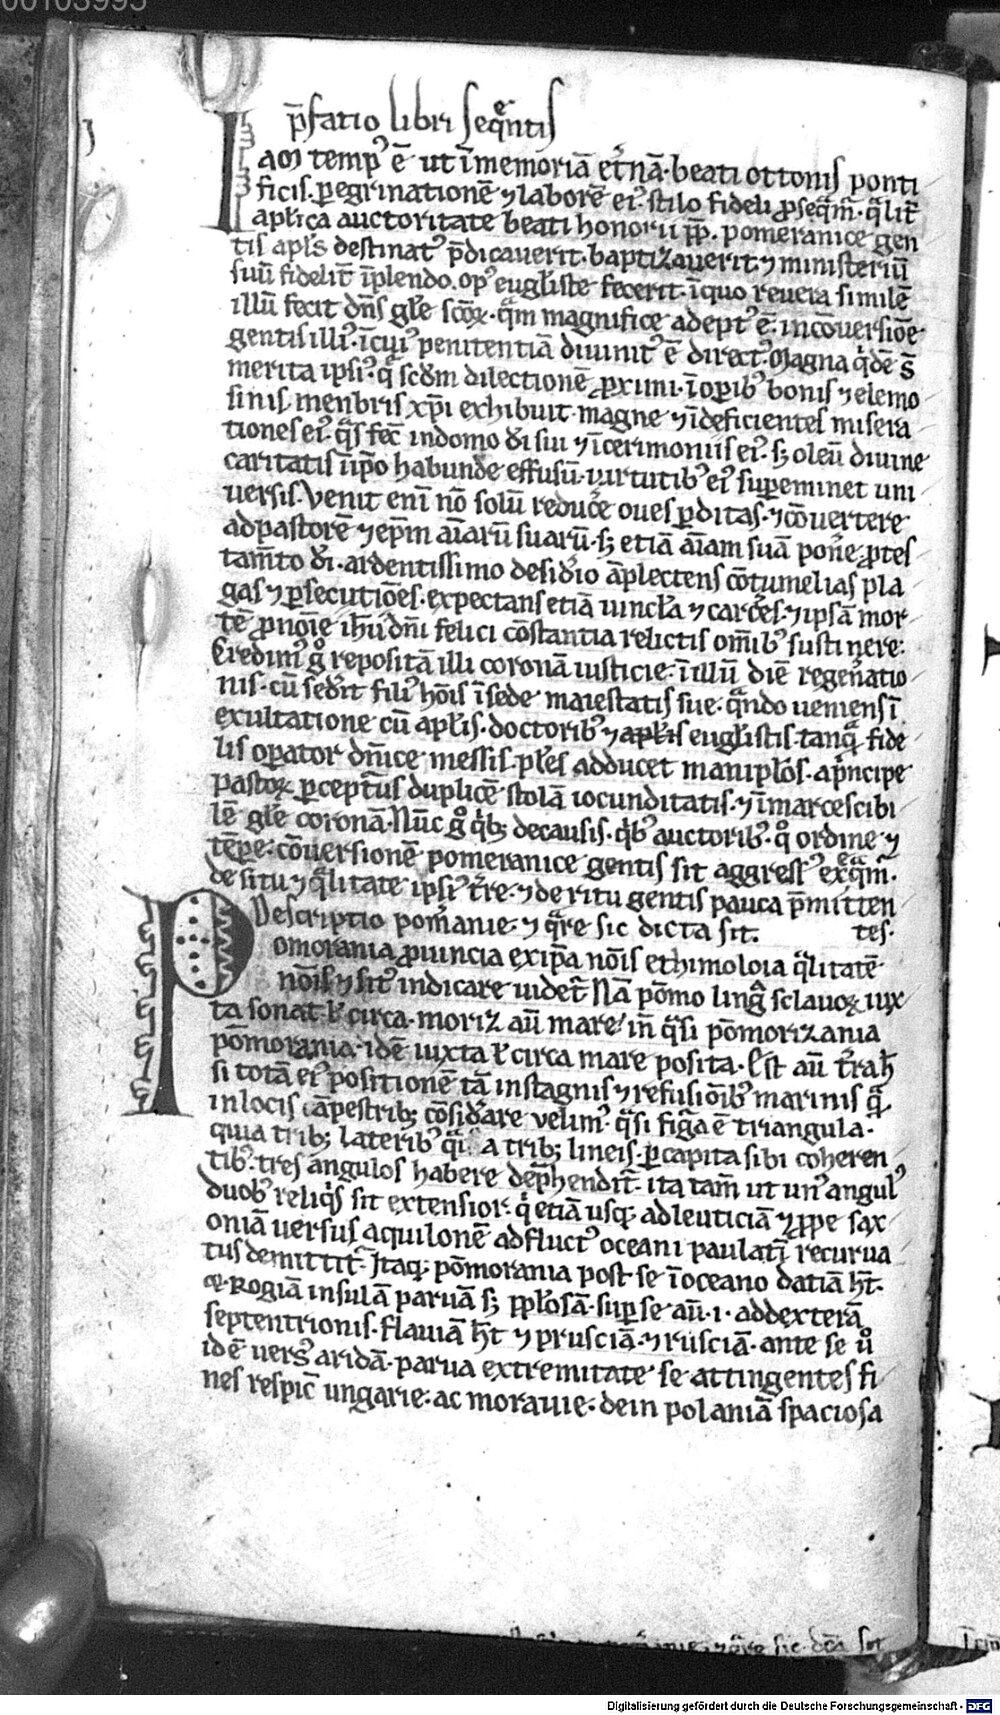 00103995
p̄fatio libri seqͤntis
Iam tempꝰ ē ut ī memoriā et̾nā · beati ottonis ponti
ficis · ꝑegrinationē ⁊ laborē eiꝰ · stilo fideli ꝓseqͣm̄ · qͣlit̾
apl̄ica auctoritate beati honorii p̄p̄ · pomeranice gen
tis apl̄s destinatꝰ p̄dicauerit · baptizauerit ⁊ ministeriū
suū fidelit̾ īplendo · opꝰ eug̅liste fecerit · ī quo reuera similē
illū fecit dn̄s gl̄e sc̄oꝝ · qͣm magnifice adeptꝰ ē · in cōuersiōe
gentis illiꝰ · ī cuiꝰ penitentiā diuinitꝰ ē directꝰ · Magna qͥdē s̄
merita ipsiꝰ · qͣ sc̄dm dilectionē ꝓximi · ī oꝑibꝰ bonis ⁊ elemo
sinis · menbris xp̄i exhibuit · magne ⁊ īdeficientes misera
tiones eiꝰ · qͣs fec̄ in domo dī sui ⁊ ī cerimoniis eiꝰ · sꝫ oleū diuine
caritatis ī ip̄o habunde effusū · uirtutibꝰ eiꝰ suꝑeminet uni
uersis · Venit enī nō solū reduc̾e oues ꝑditas · ⁊ cōuertere
ad pastorē ⁊ ep̄m aīarū suarū · sꝫ etiā aīam suā pon̾e ꝓ tes
tam̄to dī · ardentissimo desid̾io āplectens cōtumelias pla
gas ⁊ ꝑsecutiōes · expectans etiā uincl̄a ⁊ carc̾es · ⁊ ipsā mor
tē ꝓ nōīe ih̄u dn̄i felici cōstantia relictis om̄ibꝰ sustinere ·
Credimꝰ gͦ repositā illi coronā iusticie · ī illū diē regen̾atio
nis · cū sed̾it filiꝰ hōīs ī sede maiestatis sue · qͣndo ueniens ī
exultatione cū apl̄is · doctoribꝰ ⁊ apl̄is eug̅listis · tanqͣ fide
lis oꝑator dn̄ice messis · pl̄es adducet manipl̄os · a pͥncipe
pastoꝝ ꝑceptur̾us duplicē stolā iocunditatis · ⁊ īmarcescibi
lē gl̄e coronā · Nūc gͦ qͥbꝫ de causis · qͥbꝰ auctoribꝰ · qͦ ordine ⁊
tēpe̾ · cōuersionē pomeranice gentis sit aggressꝰ exeqͣm̄ ·
de situ ⁊ qͣlitate ipsiꝰ tr̾e · ⁊ de ritu gentis pauca p̄mitten
tes ·
Descriptio pom̾anie · ⁊ qͣre sic dicta sit ·
Pomorania ꝓuincia ex ip̄a nōīs ethimoloia qͣlitatē
nōīs ⁊ sitꝰ indicare uidet̾ · Nā pōmo lingͣ sclauoꝝ iux
ta sonat · ł circa · moriz aū mare · in̄ qͣsi pōmorizania
pōmorania · idē iuxta ł circa mare posita · Est aū t̾ra h̄
si totā eiꝰ positionē tā in stagnis ⁊ refusiōibꝰ marinis qͣ
in locis cāpestribꝫ cōsid̾are velimꝰ qͣsi figͣa ē triangula ·
quia tribꝫ lateribꝰ qͣi a tribꝫ lineis · ꝑ capita sibi coheren
tibꝰ · tres angulos habere dep̄hendit̾ · ita tam̄ ut unꝰ angulꝰ
duobꝰ reliqͥs sit extensior · qͥ etiā usqꝫ ad leuticiā ⁊ ꝓpe sax
oniā uersus aquilonē ad fluctꝰ oceani paulatī recurua
tus demittit̾ · Itaqꝫ pōmorania post se ī oceano datiā h̄t ·
⁊ Rogiā insulā paruā sꝫ ppl̄osā · suꝑ se aū · i · ad dexterā
septentrionis · flauiā h̄t ⁊ prusciā · ⁊ rusciā · ante se ū
idē uersꝰ aridā · parua extremitate se attingentes fi
nes respic̄ ungarie · ac morauie · dein polaniā spaciosa
Digitalisierung gefördert durch die Deutsche Forschungsgemeinschaft - DFG